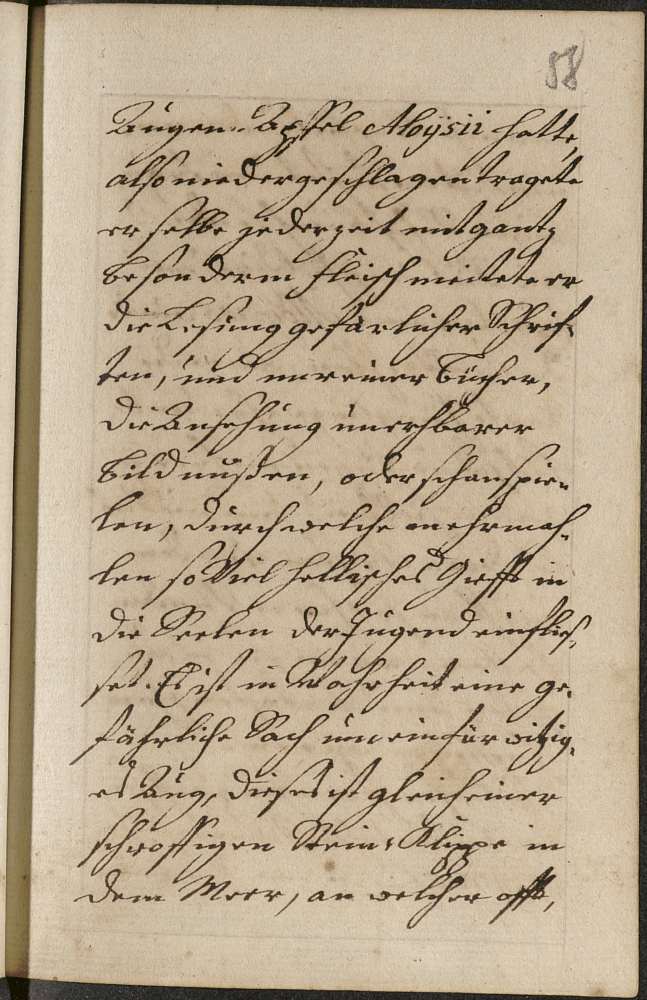 58
Augen-Apffel Aloÿsii hatte,
also niedergeschlagen tragete
er selbe jederzeit mit gantz
besonderm fleiß meidete er
die Lesung gefärlicher Schrif-
ten, und unreiner bücher,
die Ansehung unerhbarer
bildnußen, oder schauspie-
len, durch welche mehrmah-
len so viel hellisches Giefft in
die Seelen der Jugend einflies-
set. Es ist in Wahrheit eine ge-
fährliche Sach um ein fürwitzig-
es Aug, dieses ist gleich einer
schroffigen Stein-Klippe in
dem Meer, an welcher offt,